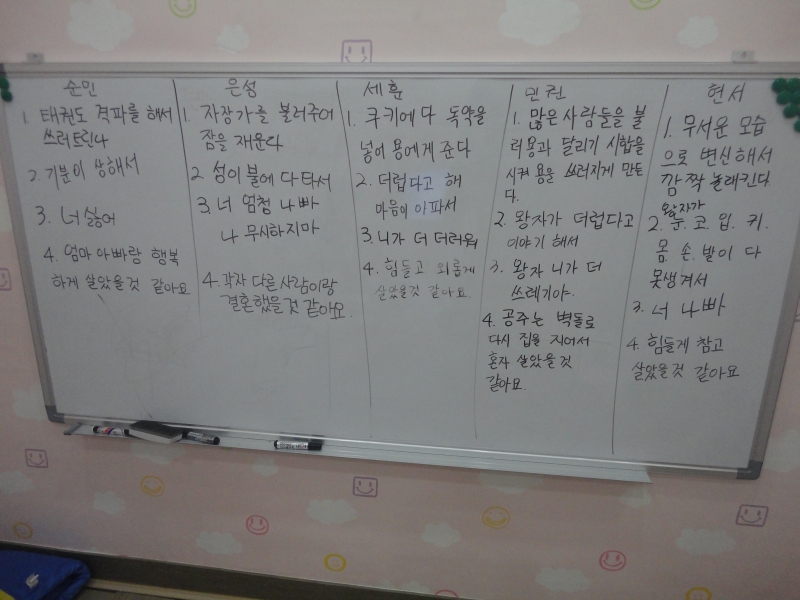 순민
1. 태권도 격파를 해서
쓰러트린다
2. 기분이 상해서
3. 너 싫어
4. 엄마 아빠랑 행복
하게 살았을것 같아요
은성
1. 자장가를 불러주어
잠을 재운다
2. 섬이 불에 다 타서
3. 너 엄청 나빠
나 무시하지마
4. 각자 다른 사람이랑
결혼했을것 같아요.
세훈
1. 쿠키에다 독약을
넣어 용에게 준다
2. 더럽다고 해
마음이 아파서
3. 니가 더 더러워
4. 힘들고 외롭게
살았을것 같아요.
민권
1. 많은 사람들을 불
러 용과 달리기 시합을
시켜 용을 쓰러지게 만든
다.
2. 왕자가 더럽다고
이야기 해서
3. 왕자 니가 더
쓰레기야.
4. 공주는 벽돌로
다시 집을 지어서
혼자 살았을것
같아요.
현서
1. 무서운 모습
으로 변신해서
깜짝 놀래킨다.
왕자가
2. 눈. 코. 입. 귀.
몸. 손. 발이 다
못생겨서
3. 너 나빠
4. 힘들게 참고
살았을것 같아요